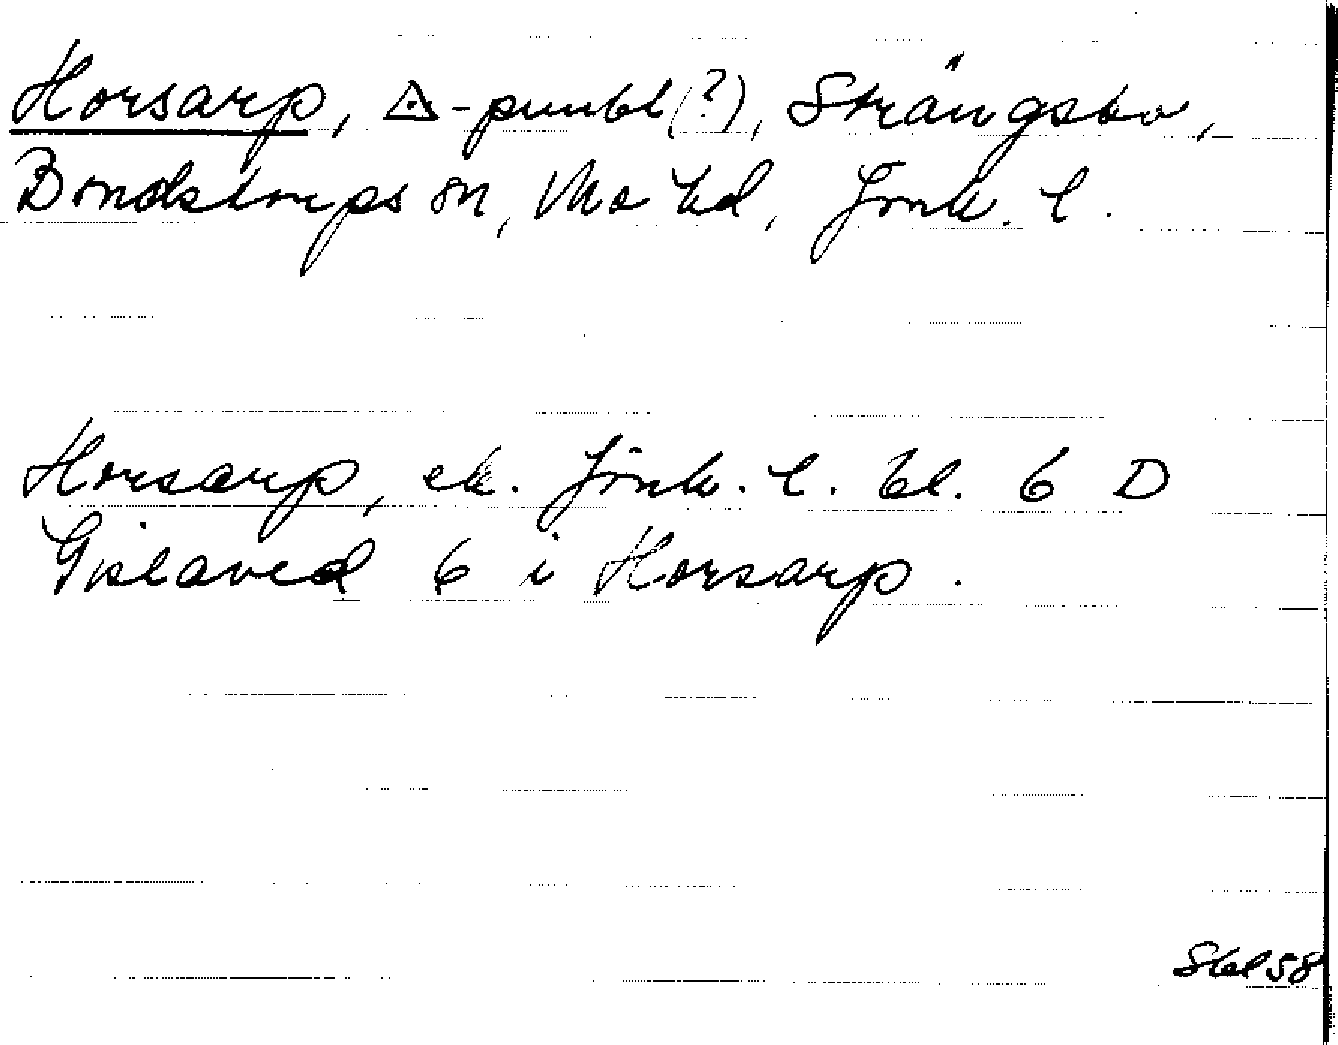 Horsarp, △-punkt(?), Strängsbo,
Bondstorps sn, Mo hd, Jönk. l.
Horsarp, ek. Jönk. l. bl. 6 D
Gislaved 6 i Horsarp.
Skl 58